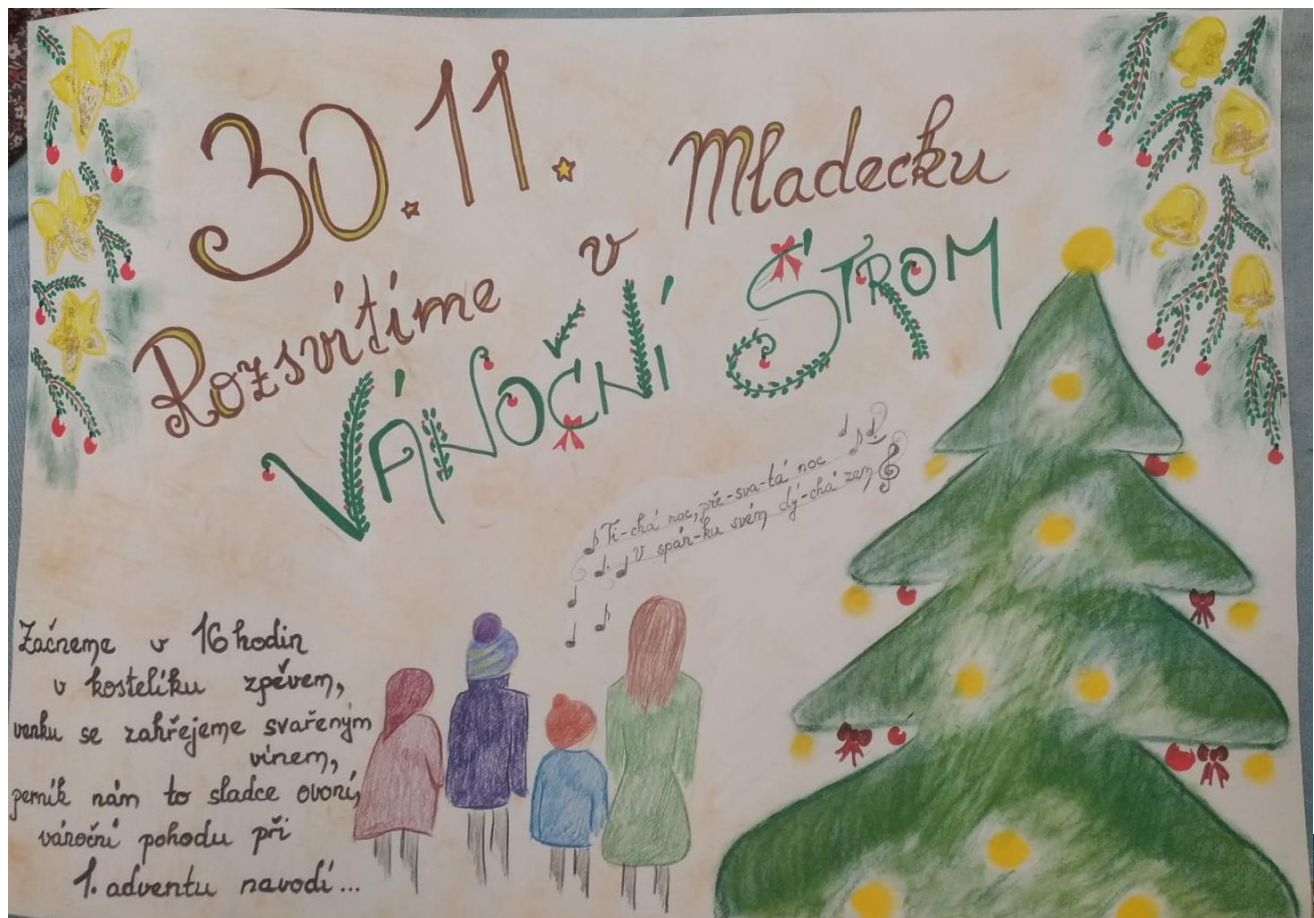 30.11.
Rozsvítíme v Mladecku
VÁNOČNÍ STROM
Ti-chá noc, pře-sva-tá noc
V spán-ku svém dý-chá zem
Začneme v 16 hodin
v kostelíku zpěvem,
venku se zahřejeme svařeným
vínem,
perník nám to sladce ovoní,
vánoční pohodu při
1. adventu navodí...